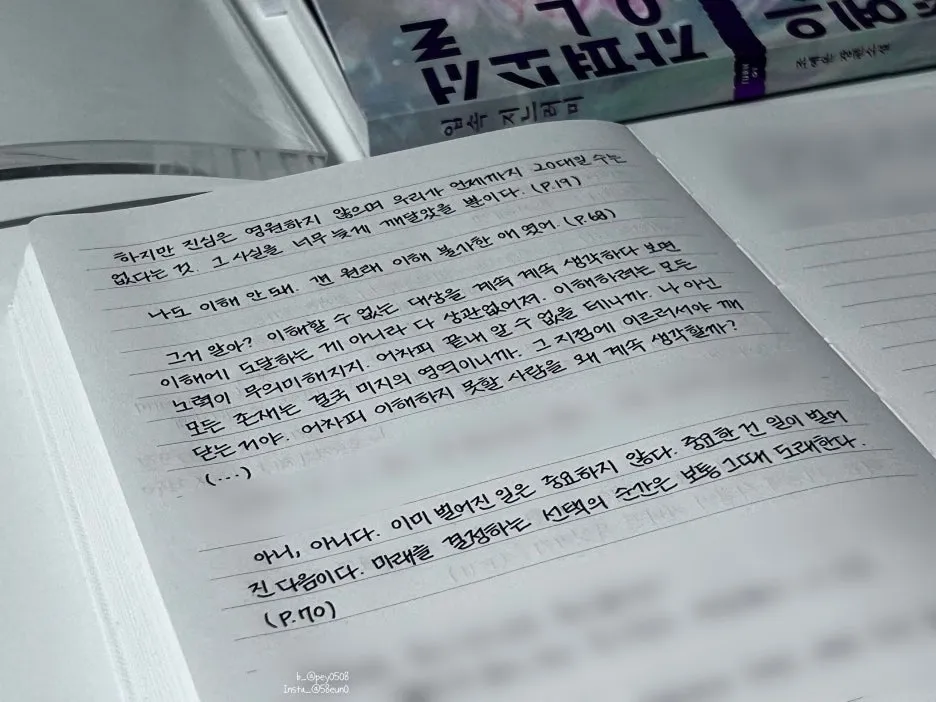 입속 지느러미
조예은 장편소설
하지만 진심은 영원하지 않으며 우리가 언제까지 20대일 수는
없다는 것. 그 사실을 너무 늦게 깨달았을 뿐이다. (P.19)
나도 이해 안 돼. 걘 원래 이해 불가한 애였어. (P.68)
그거 알아? 이해할 수 없는 대상을 계속 계속 생각하다 보면
이해에 도달하는 게 아니라 다 상관없어져. 이해하려는 모든
노력이 무의미해지지. 어차피 끝내 알 수 없을 테니까. 나 아닌
모든 존재는 결국 미지의 영역이니까. 그 지점에 이르러서야 깨
닫는 거야. 어차피 이해하지 못할 사람을 왜 계속 생각할까?
(...)
아니, 아니다. 이미 벌어진 일은 중요하지 않다. 중요한 건 일이 벌어
진 다음이다. 미래를 결정하는 선택의 순간은 보통 그때 도래한다.
(P.70)
b_@pey0508
Insta_@58eun0